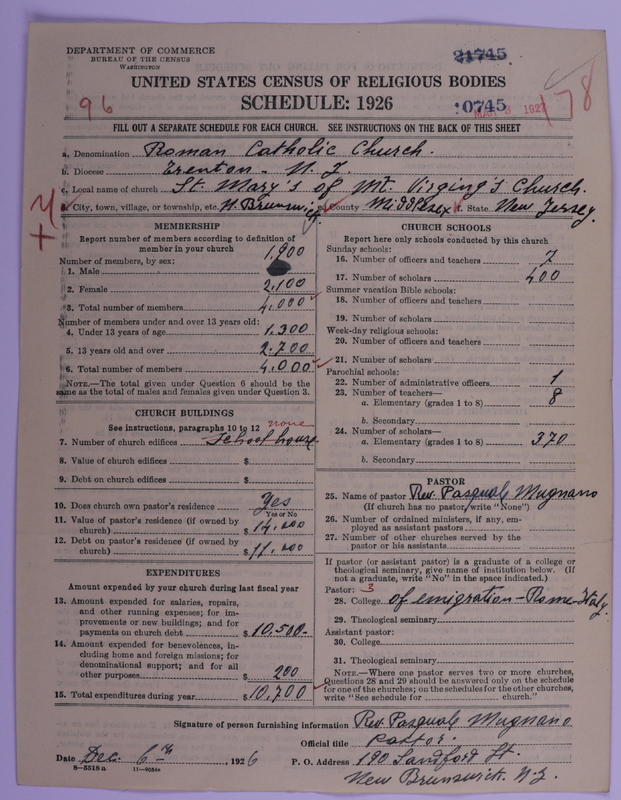 DEPARTMENT OF COMMERCE
BUREAU OF THE CENSUS
WASHINGTON
21745
UNITED STATES CENSUS OF RELIGIOUS BODIES
SCHEDULE: 1926
96
0745
178
FILL OUT A SEPARATE SCHEDULE FOR EACH CHURCH. SEE INSTRUCTIONS ON THE BACK OF THIS SHEET
a. Denomination Roman Catholic Church.
b. Diocese Trenton - N. J.
c. Local name of church St. Mary's of Mt. Virging's Church.
d. City, town, village, or township, etc. N. Brunswick e. County Middlesex f. State New Jersey.
MEMBERSHIP
Report number of members according to definition of member in your church
Number of members, by sex:
1. Male 1,900
2. Female 2,100
3. Total number of members 4,000
Number of members under and over 13 years old:
4. Under 13 years of age 1.300
5. 13 years old and over 2.700
6. Total number of members 4.000
NOTE.—The total given under Question 6 should be the same as the total of males and females given under Question 3.
CHURCH BUILDINGS
See instructions, paragraphs 10 to 12 none
7. Number of church edifices School house
8. Value of church edifices $
9. Debt on church edifices $
10. Does church own pastor's residence Yes
Yes or No
11. Value of pastor's residence (if owned by church) $ 14.000
12. Debt on pastor's residence (if owned by church) $ 11.000
EXPENDITURES
Amount expended by your church during last fiscal year
13. Amount expended for salaries, repairs, and other running expenses; for improvements or new buildings; and for payments on church debt $ 10,500-
14. Amount expended for benevolences, including home and foreign missions; for denominational support; and for all other purposes $ 200
15. Total expenditures during year $ 10,700
CHURCH SCHOOLS
Report here only schools conducted by this church
Sunday schools:
16. Number of officers and teachers 7
17. Number of scholars 400
Summer vacation Bible schools:
18. Number of officers and teachers
19. Number of scholars
Week-day religious schools:
20. Number of officers and teachers
21. Number of scholars
Parochial schools:
22. Number of administrative officers 1
23. Number of teachers—
a. Elementary (grades 1 to 8) 8
b. Secondary
24. Number of scholars—
a. Elementary (grades 1 to 8) 370
b. Secondary
PASTOR
25. Name of pastor Rev. Pasquale Mugnano
(If church has no pastor, write "None")
26. Number of ordained ministers, if any, employed as assistant pastors
27. Number of other churches served by the pastor or his assistants
If pastor (or assistant pastor) is a graduate of a college or theological seminary, give name of institution below. (If not a graduate, write "No" in the space indicated.)
Pastor: 3
28. College of emigration - Rome Italy.
29. Theological seminary
Assistant pastor:
30. College
31. Theological seminary
NOTE.—Where one pastor serves two or more churches, Questions 28 and 29 should be answered only on the schedule for one of the churches; on the schedules for the other churches, write "See schedule for church."
Signature of person furnishing information Rev. Pasquale Mugnano
Official title Pastor.
Date Dec. 6th, 1926 P. O. Address 190 Sandford St.
8—5518a 11—9054a
New Brunswick. N. J.